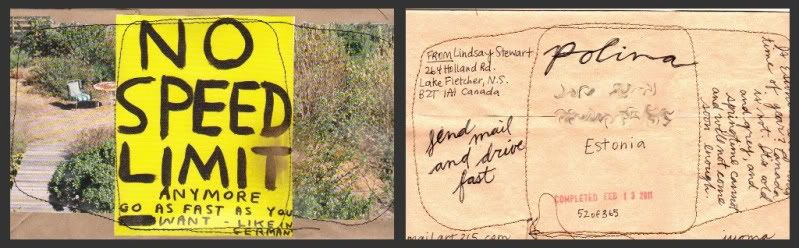 NO
SPEED
LIMIT
ANYMORE
GO AS FAST AS YOU
WANT - LIKE IN
GERMANY
FROM Lindsay Stewart
264 Holland Rd.
Lake Fletcher, N.S.
B2T 1A1 Canada
send mail
and drive
fast
Polina
Estonia
COMPLETED FEB 13 2011
52 of 365
time of year? Canada
is not. It's cold
and grey, and
springtime cannot
and will not come
soon enough.
mailart365.com